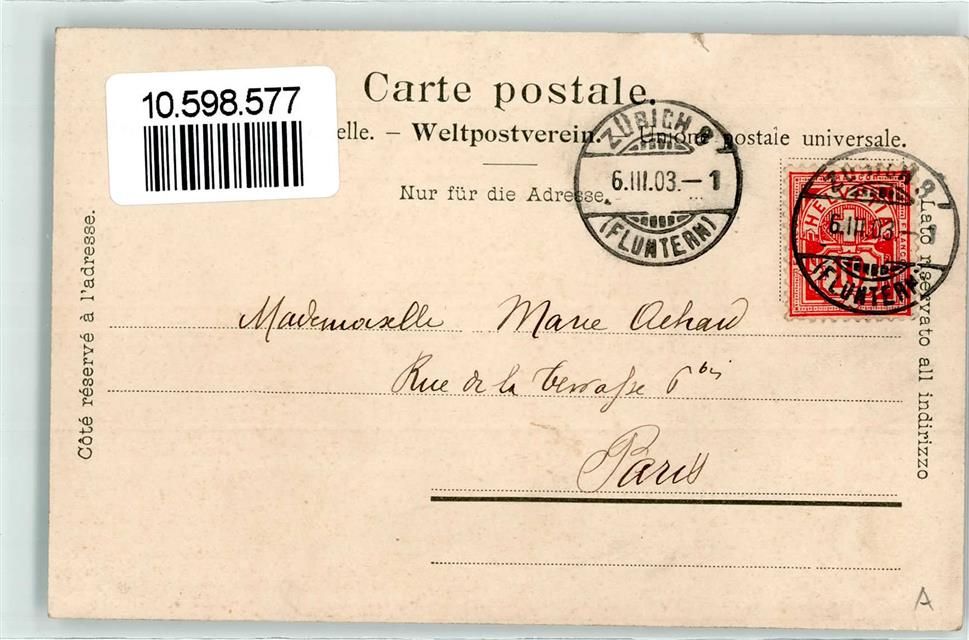 10.598.577
Carte postale.
elle. – Weltpostverein. – Unione postale universale.
Nur für die Adresse.
ZÜRICH 9
6.III.03.–1
(FLUNTERN)
HELVETIA
FRANCO
10
6.III.03.–
(FLUNTERN)
Côté réservé à l'adresse.
Lato riservato all indirizzo
Mademoiselle Marie Achard
Rue de la Terrasse 6 bis
Paris
A